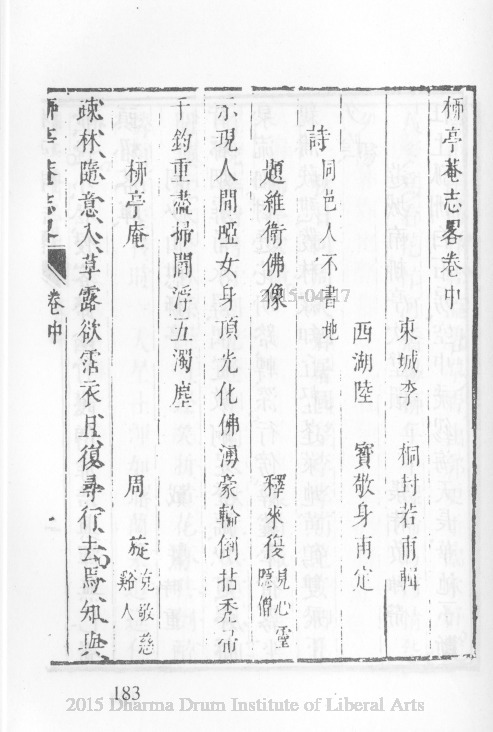 柳亭菴志畧卷中
東城李　桐封若甫輯
西湖陸　寳敬身甫定
詩同邑人不書地
題維衛佛像　釋來復見心靈隱僧
示現人間啞女身頂光化佛湧豪輪倒拈秃帚
千鈞重盡掃閻浮五濁塵
柳亭庵　周　旋克敬慈谿人
疎林隨意入草露欲霑衣且復尋行去焉知與
卷中
2015-04-17
183
2015 Dharma Drum Institute of Liberal Arts